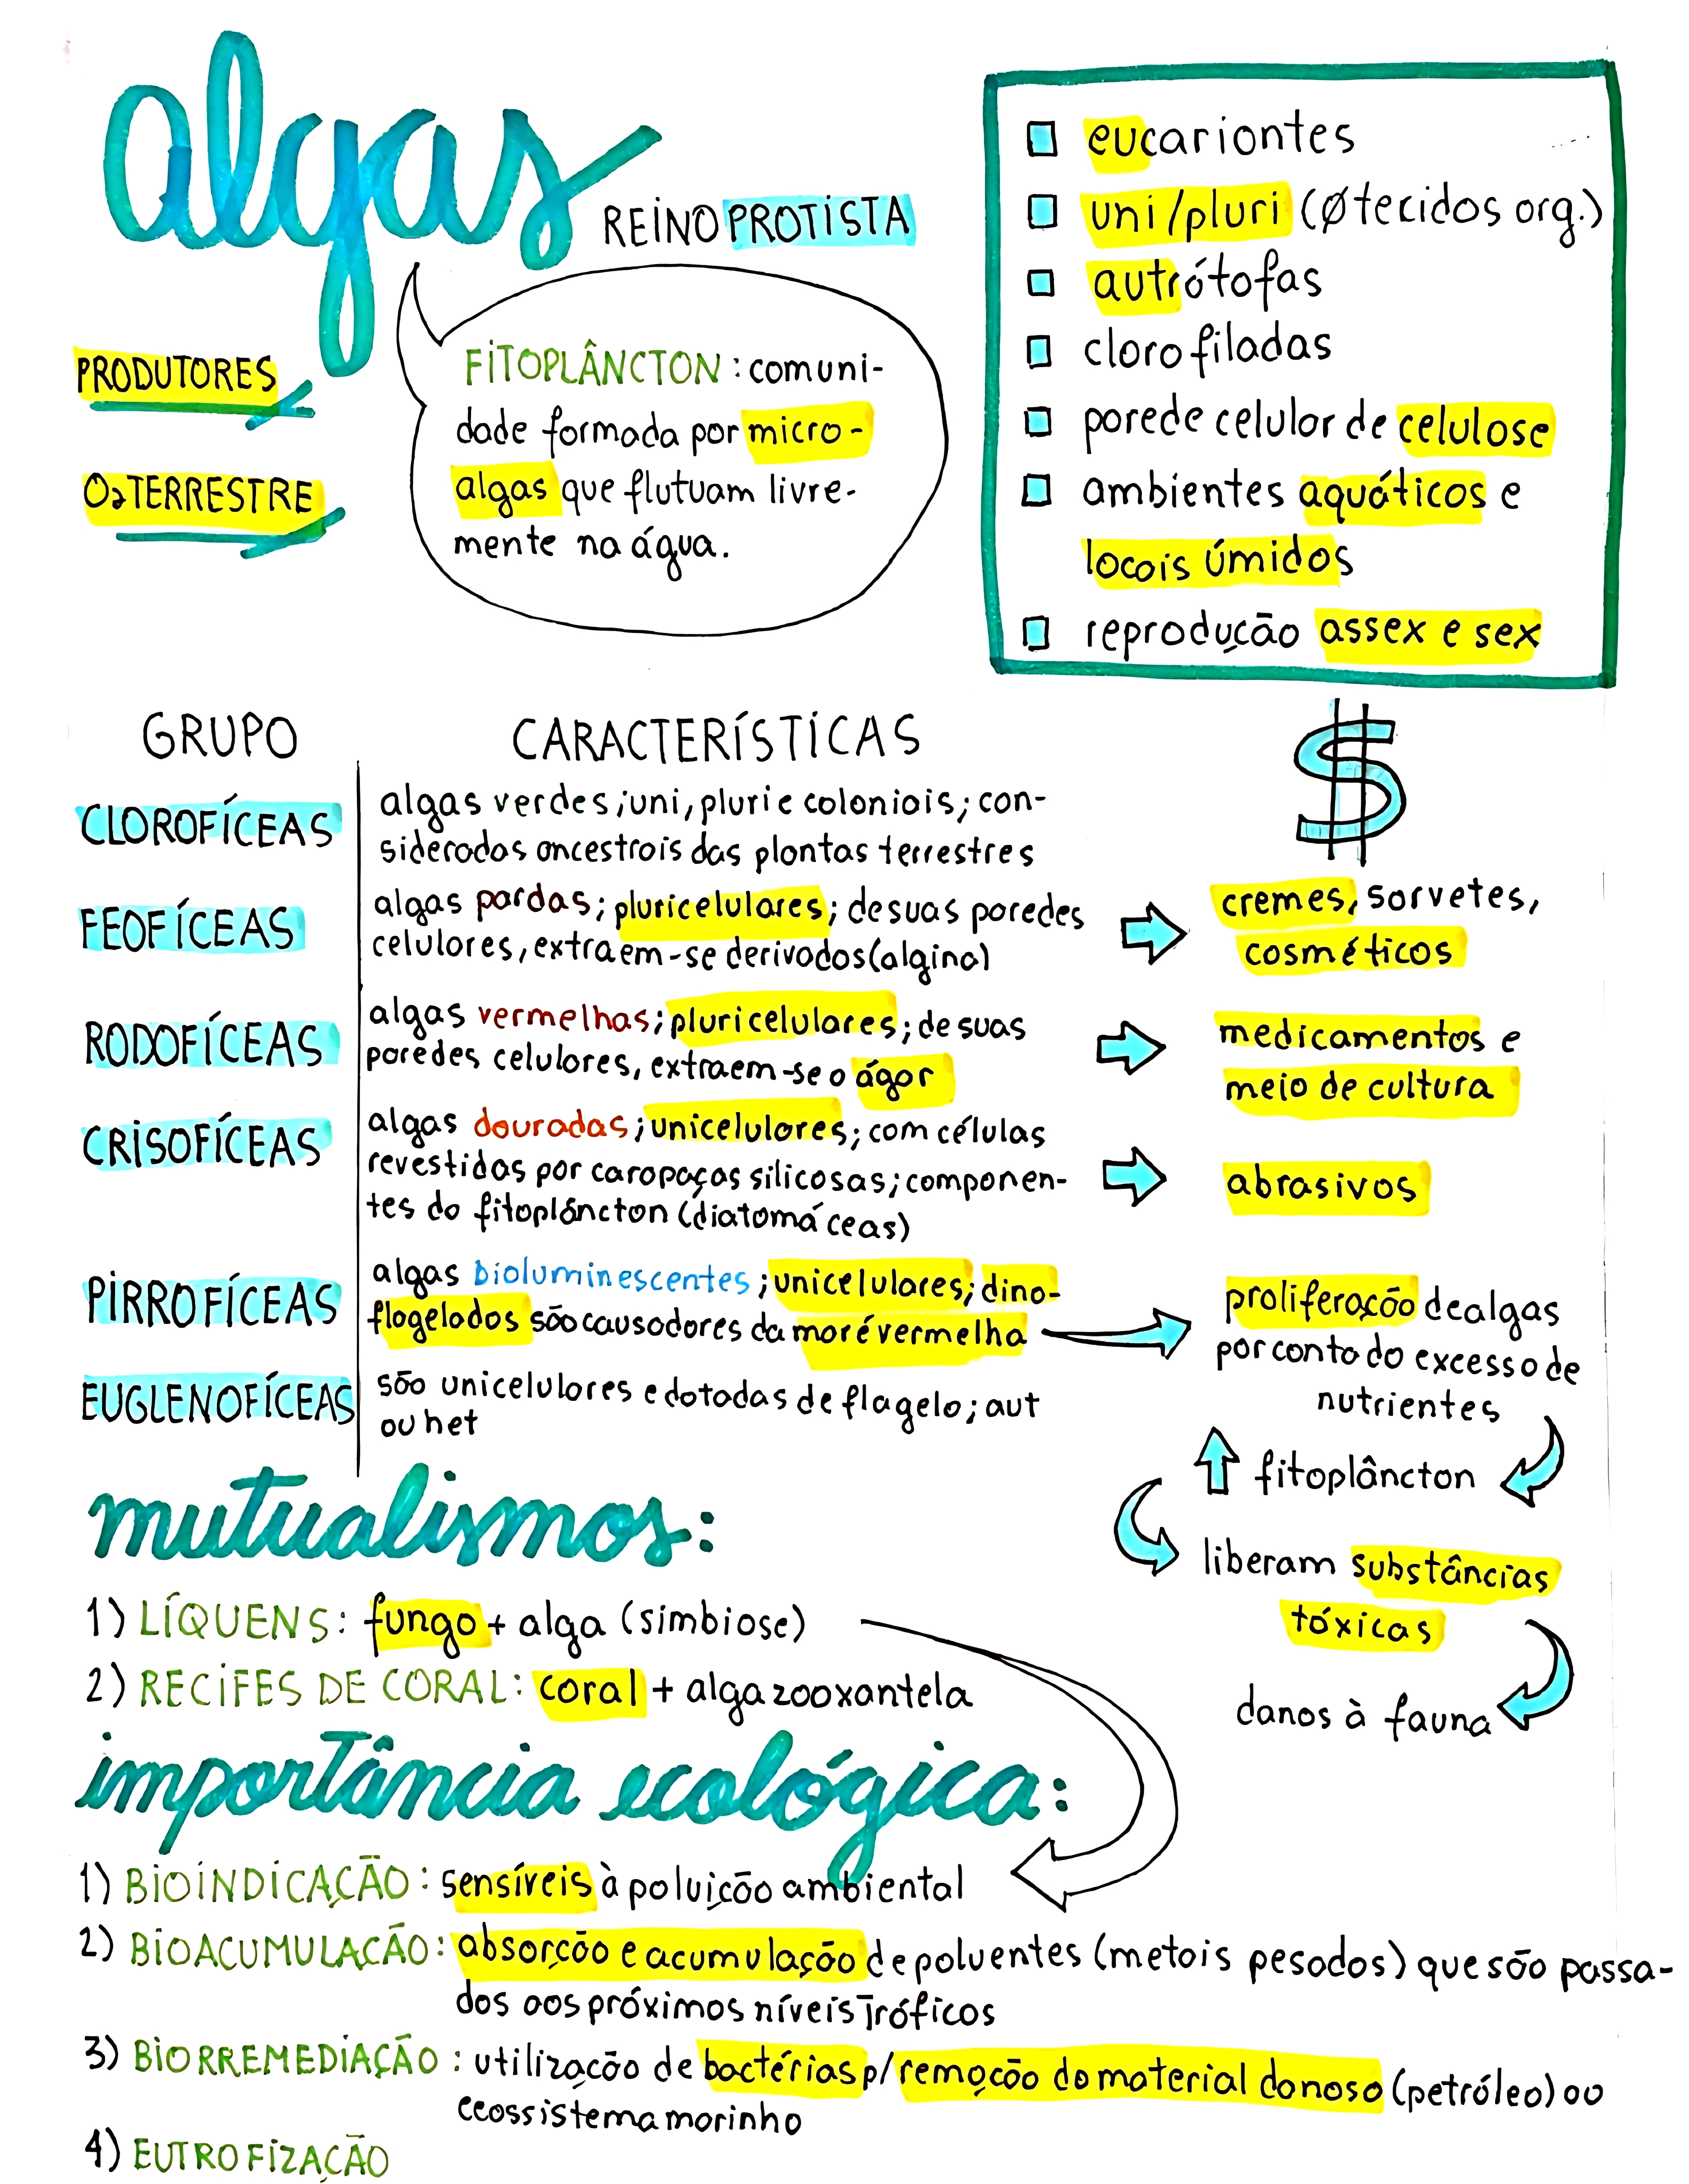 algas
REINO PROTISTA
PRODUTORES
O₂ TERRESTRE
FITOPLÂNCTON: comuni-
dade formada por micro-
algas que flutuam livre-
mente na água.
eucariontes
uni/pluri (Ø tecidos org.)
autrótofas
clorofiladas
parede celular de celulose
ambientes aquáticos e
locais úmidos
reprodução assex e sex
GRUPO
CARACTERÍSTICAS
$
CLOROFÍCEAS
algas verdes; uni, pluri e coloniais; con-
sideradas ancestrais das plantas terrestres
FEOFÍCEAS
algas pardas; pluricelulares; de suas paredes
celulares, extraem-se derivados (algina)
cremes, sorvetes,
cosméticos
RODOFÍCEAS
algas vermelhas; pluricelulares; de suas
paredes celulares, extraem-se o ágar
medicamentos e
meio de cultura
CRISOFÍCEAS
algas douradas; unicelulares; com células
revestidas por carapaças silicosas; componen-
tes do fitoplâncton (diatomáceas)
abrasivos
PIRROFÍCEAS
algas bioluminescentes; unicelulares; dino-
flagelados são causadores da maré vermelha
proliferação de algas
por conta do excesso de
nutrientes
EUGLENOFÍCEAS
são unicelulares e dotadas de flagelo; aut
ou het
fitoplâncton
liberam substâncias
tóxicas
danos à fauna
mutualismos:
1) LÍQUENS: fungo + alga (simbiose)
2) RECIFES DE CORAL: coral + alga zooxantela
importância ecológica:
1) BIOINDICAÇÃO: sensíveis à poluição ambiental
2) BIOACUMULAÇÃO: absorção e acumulação de poluentes (metais pesados) que são passa-
dos aos próximos níveis tróficos
3) BIORREMEDIAÇÃO: utilização de bactérias p/ remoção do material danoso (petróleo) ao
ecossistema marinho
4) EUTROFIZAÇÃO